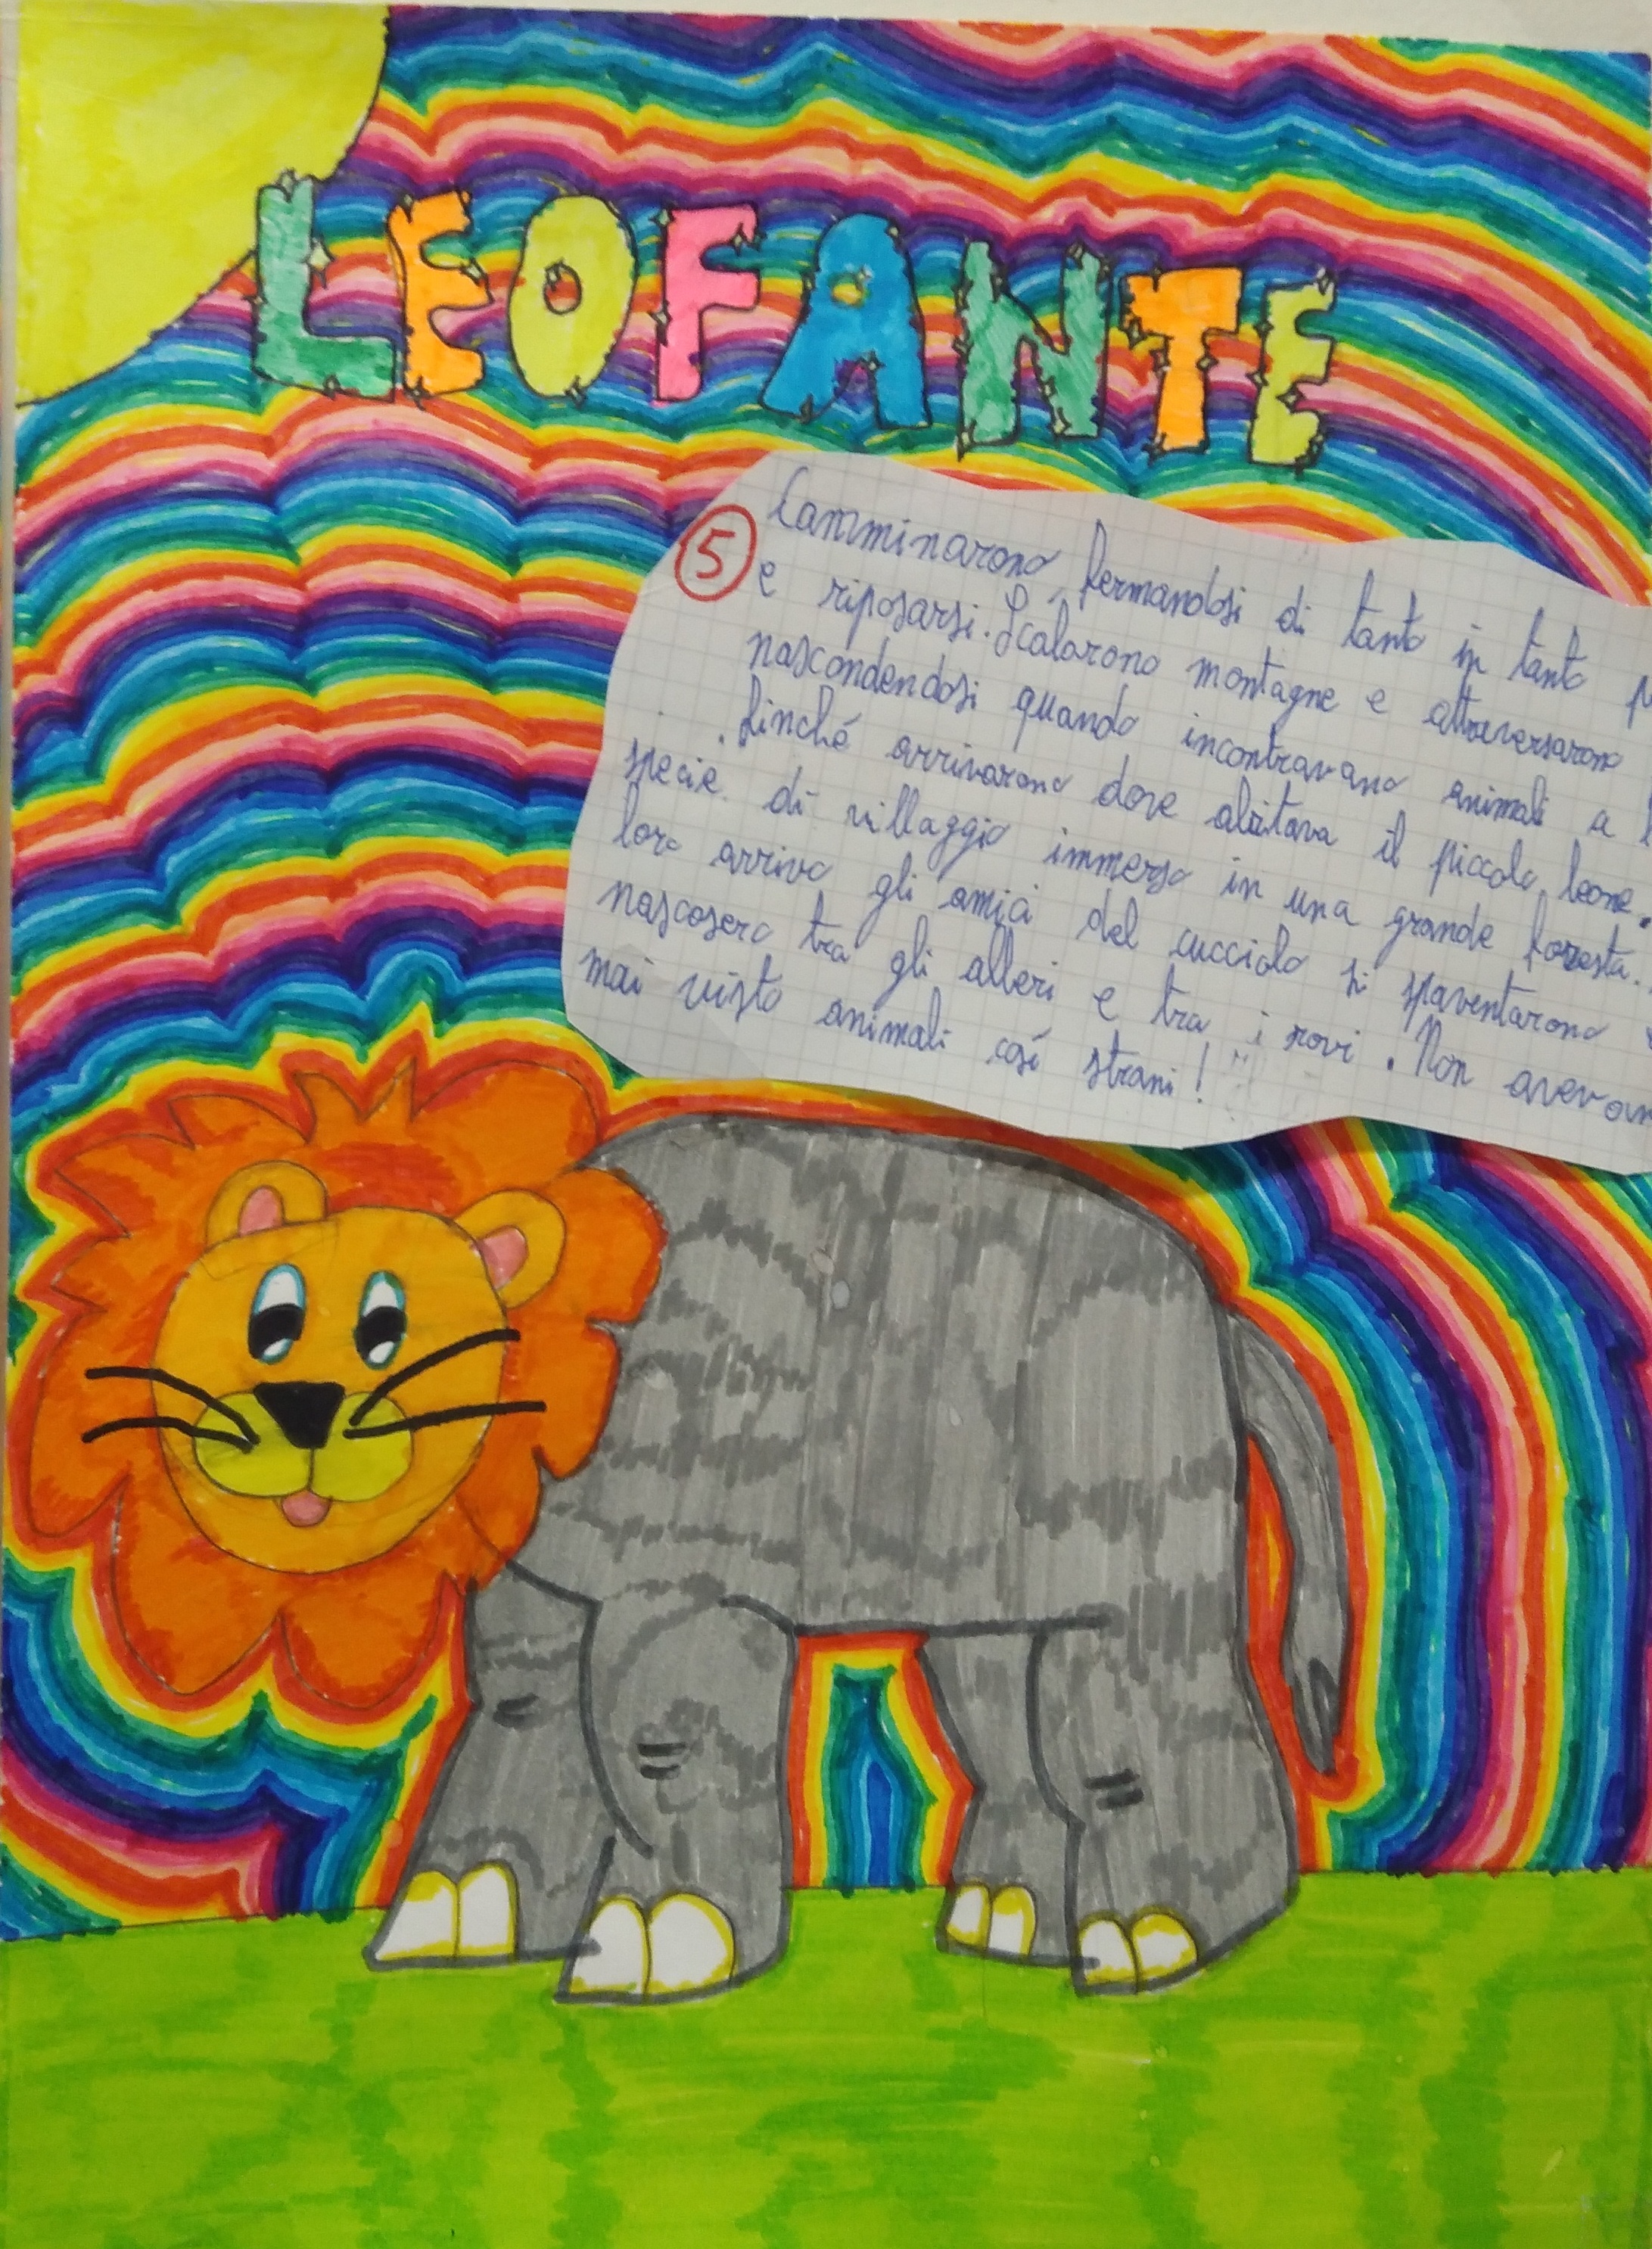 LEOFANTE
5
Camminarono, fermandosi di tanto in tanto
e riposarsi. Scalarono montagne e attraversarono
nascondendosi quando incontravano animali a
. finché arrivarono dove abitava il piccolo leone.
specie di villaggio immerso in una grande foresta.
loro arrivo gli amici del cucciolo si spaventarono
nascosero tra gli alberi e tra i rovi. Non
mai visto animali così strani!